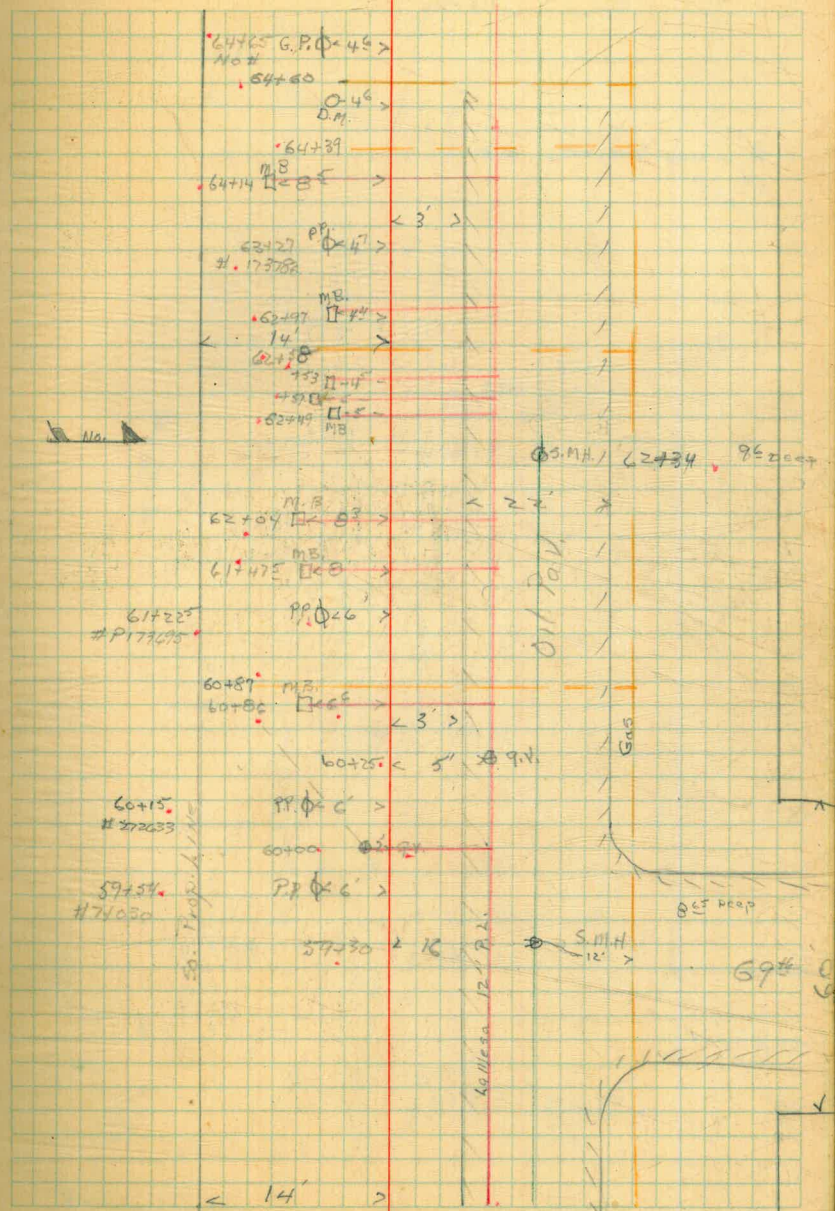 64+65 G.P. < 4⁶ >
No #
64+60
O-4⁶
D.M.
64+39
M.B
64+14 < 8⁵ >
< 3' >
P.P.
63+27 < 4⁷ >
# 173782
M.B.
62+97 4⁴ >
< 14' >
62+58
+53 -4⁵ -
62+49 -5 -
MB
No.
S.M.H. 62+34
< 22' >
M.B.
62+04 < 8³ >
M.B.
61+47⁵ < 8 >
Oil Pav.
61+22⁵ P.P. < 6' >
#P173695
60+87 M.B.
60+86 < 6⁶ >
< 3' >
Gas
60+25 < 5' G.V.
60+15 P.P. < 6' >
# 272633
60+00 2" G.V.
59+54 P.P. < 6' >
#74030
8⁶⁵ Deep
So. Prop. Line
59+30 < 16 S.M.H
12' >
69th 60'
La Mesa 12" P.L.
< 14' >